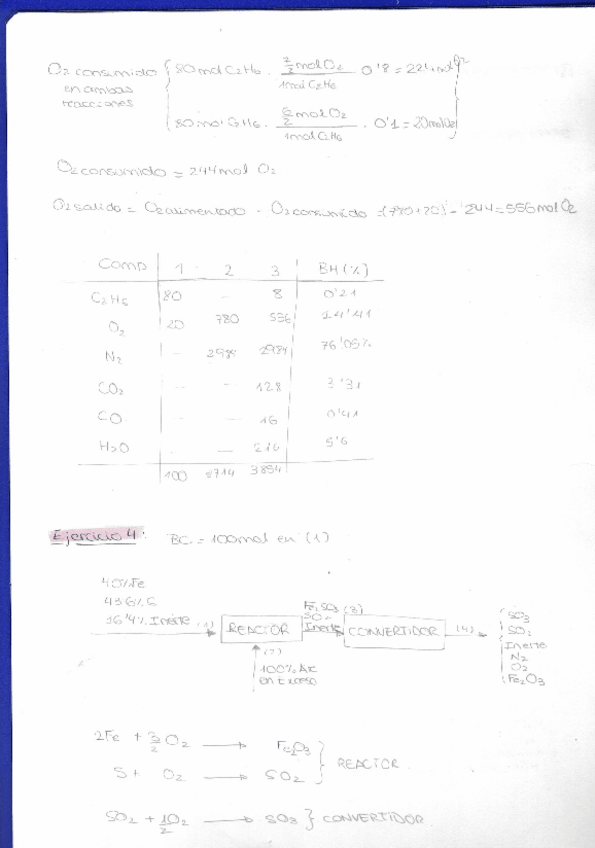 O2 consumido en ambas reacciones
80 mol C2H6 · 7/2 mol O2 / 1 mol C2H6 · 0'8 = 224 mol O2
80 mol C2H6 · 5/2 mol O2 / 1 mol C2H6 · 0'1 = 20 mol O2
O2 consumido = 244 mol O2
O2 salido = O2 alimentado - O2 consumido = (780+20) - 244 = 556 mol O2
Comp 1 2 3 BH (%)
C2H6 80 — 8 0'21
O2 20 780 556 14'41
N2 — 2934 2934 76'05%
CO2 — — 128 3'31
CO — — 16 0'41
H2O — — 216 5'6
100 3714 3854
Ejercicio 4: BC = 100 mol en (1)
40% Fe
43'6% S
16'4% Inerte (1)
REACTOR
(2)
100% Air
en Exceso
SO2
Inerte
(3)
CONVERTIDOR
(4)
SO3
SO2
Inerte
N2
O2
Fe2O3
2Fe + 3/2 O2 → Fe2O3
S + O2 → SO2
REACTOR
SO2 + 1/2 O2 → SO3 } CONVERTIDOR